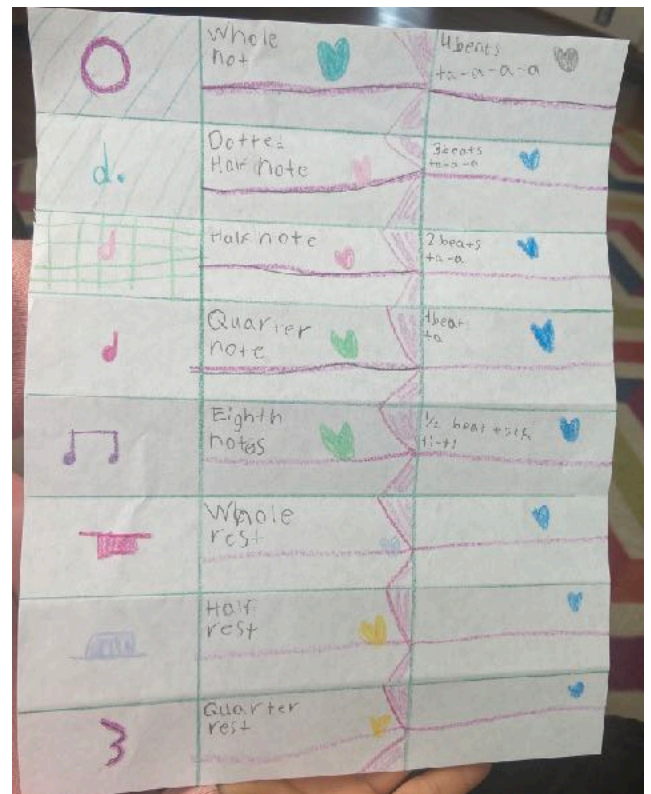 Whole
not
4 beats
ta-a-a-a
d.
Dotted
Half note
3 beats
ta-a-a
Half note
2 beats
ta-a
Quarter
note
1 beat
ta
Eighth
notes
1/2 beat each
ti-ti
Whole
rest
Half
rest
Quarter
rest